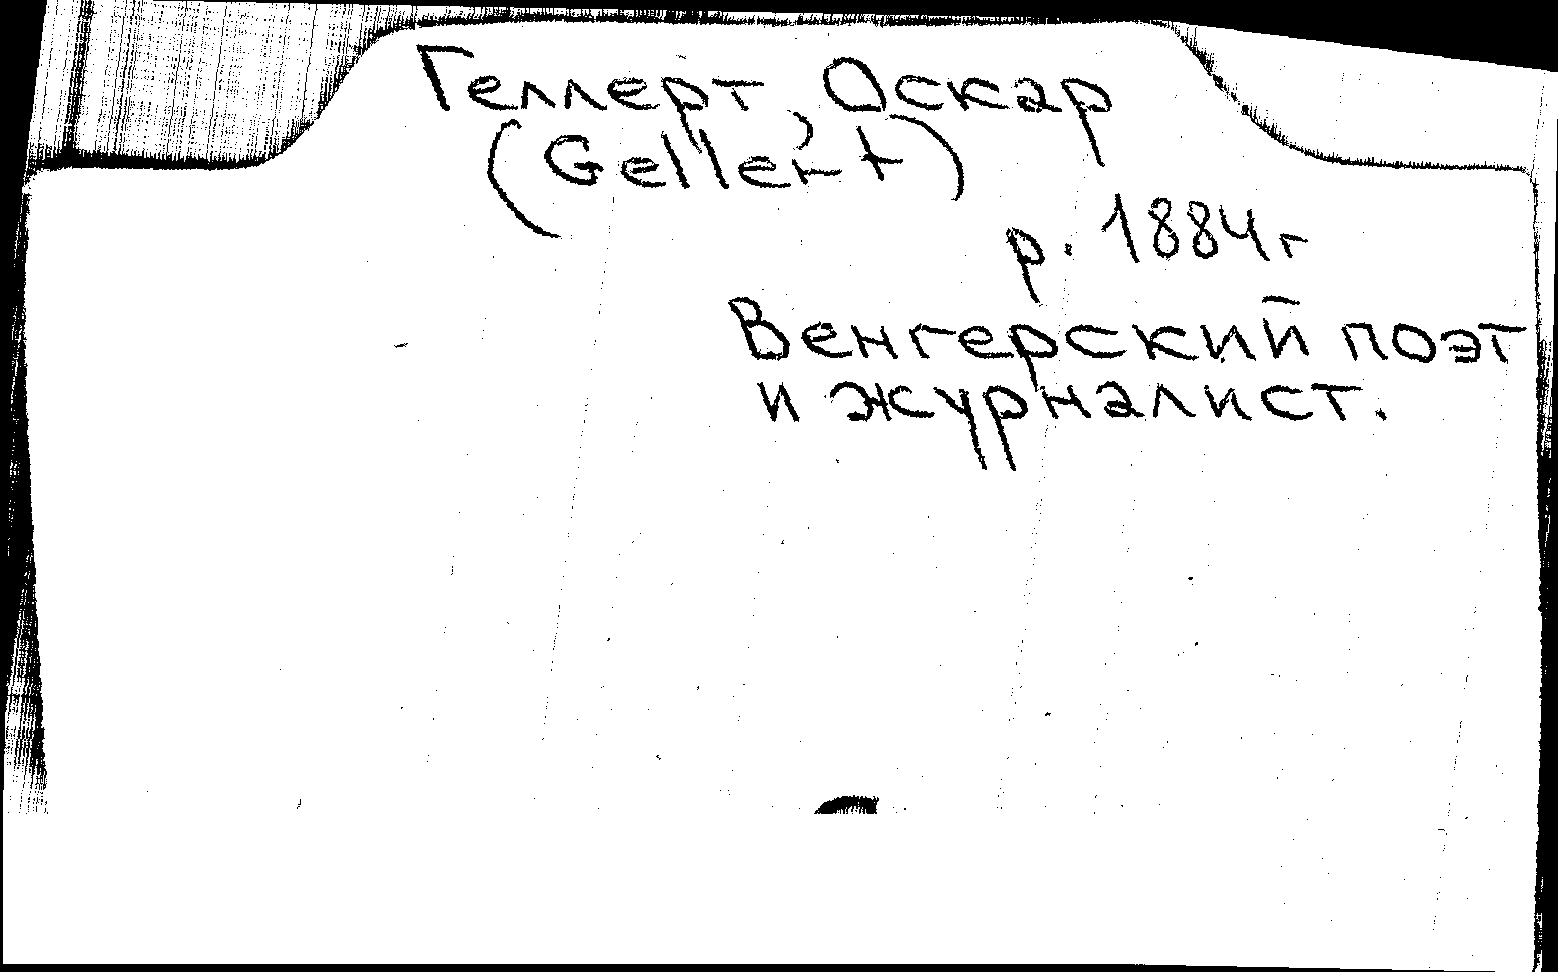 Геллерт, Оскар
(Gellért)
р. 1884г
Венгерский поэт
и журналист.